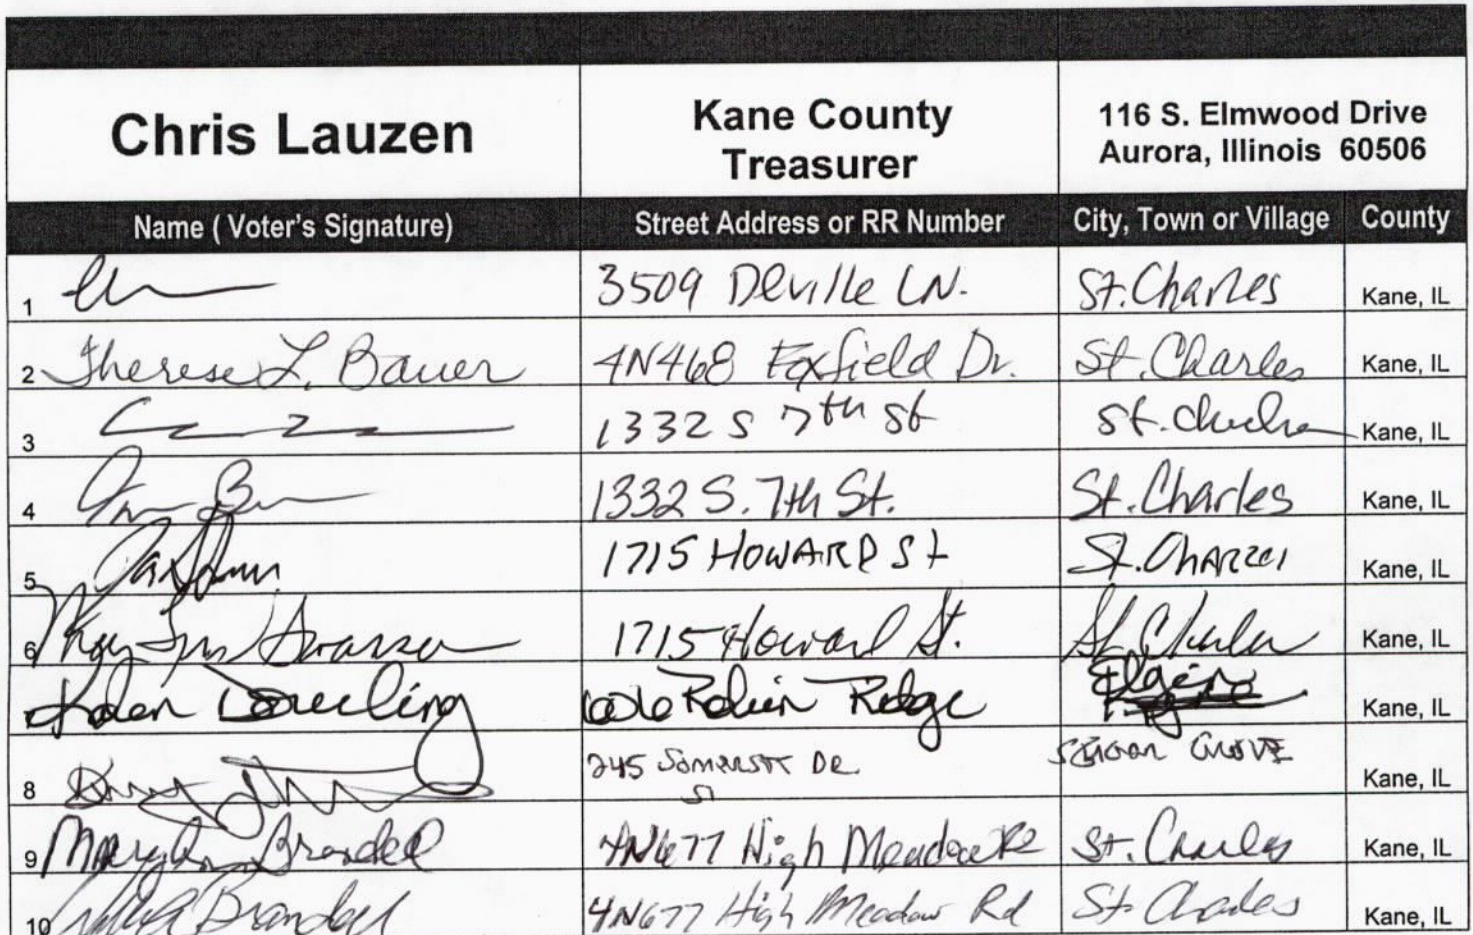 Chris Lauzen
Kane County
Treasurer
116 S. Elmwood Drive
Aurora, Illinois 60506
Name ( Voter's Signature) Street Address or RR Number City, Town or Village County
1 3509 Deville LN. St. Charles Kane, IL
2 Therese L. Bauer 4N468 Foxfield Dr. St. Charles Kane, IL
3 1332 S 7th St St. Kane, IL
4 1332 S. 7th St. St. Charles Kane, IL
5 1715 HOWARD St St. Kane, IL
6 1715 Howard St. St. Kane, IL
Robin Ridge Elgin Kane, IL
8 245 DR Grove Kane, IL
9 Brandel 4N677 High Meadow St. Charles Kane, IL
10 4N677 High Meadow Rd St. Charles Kane, IL